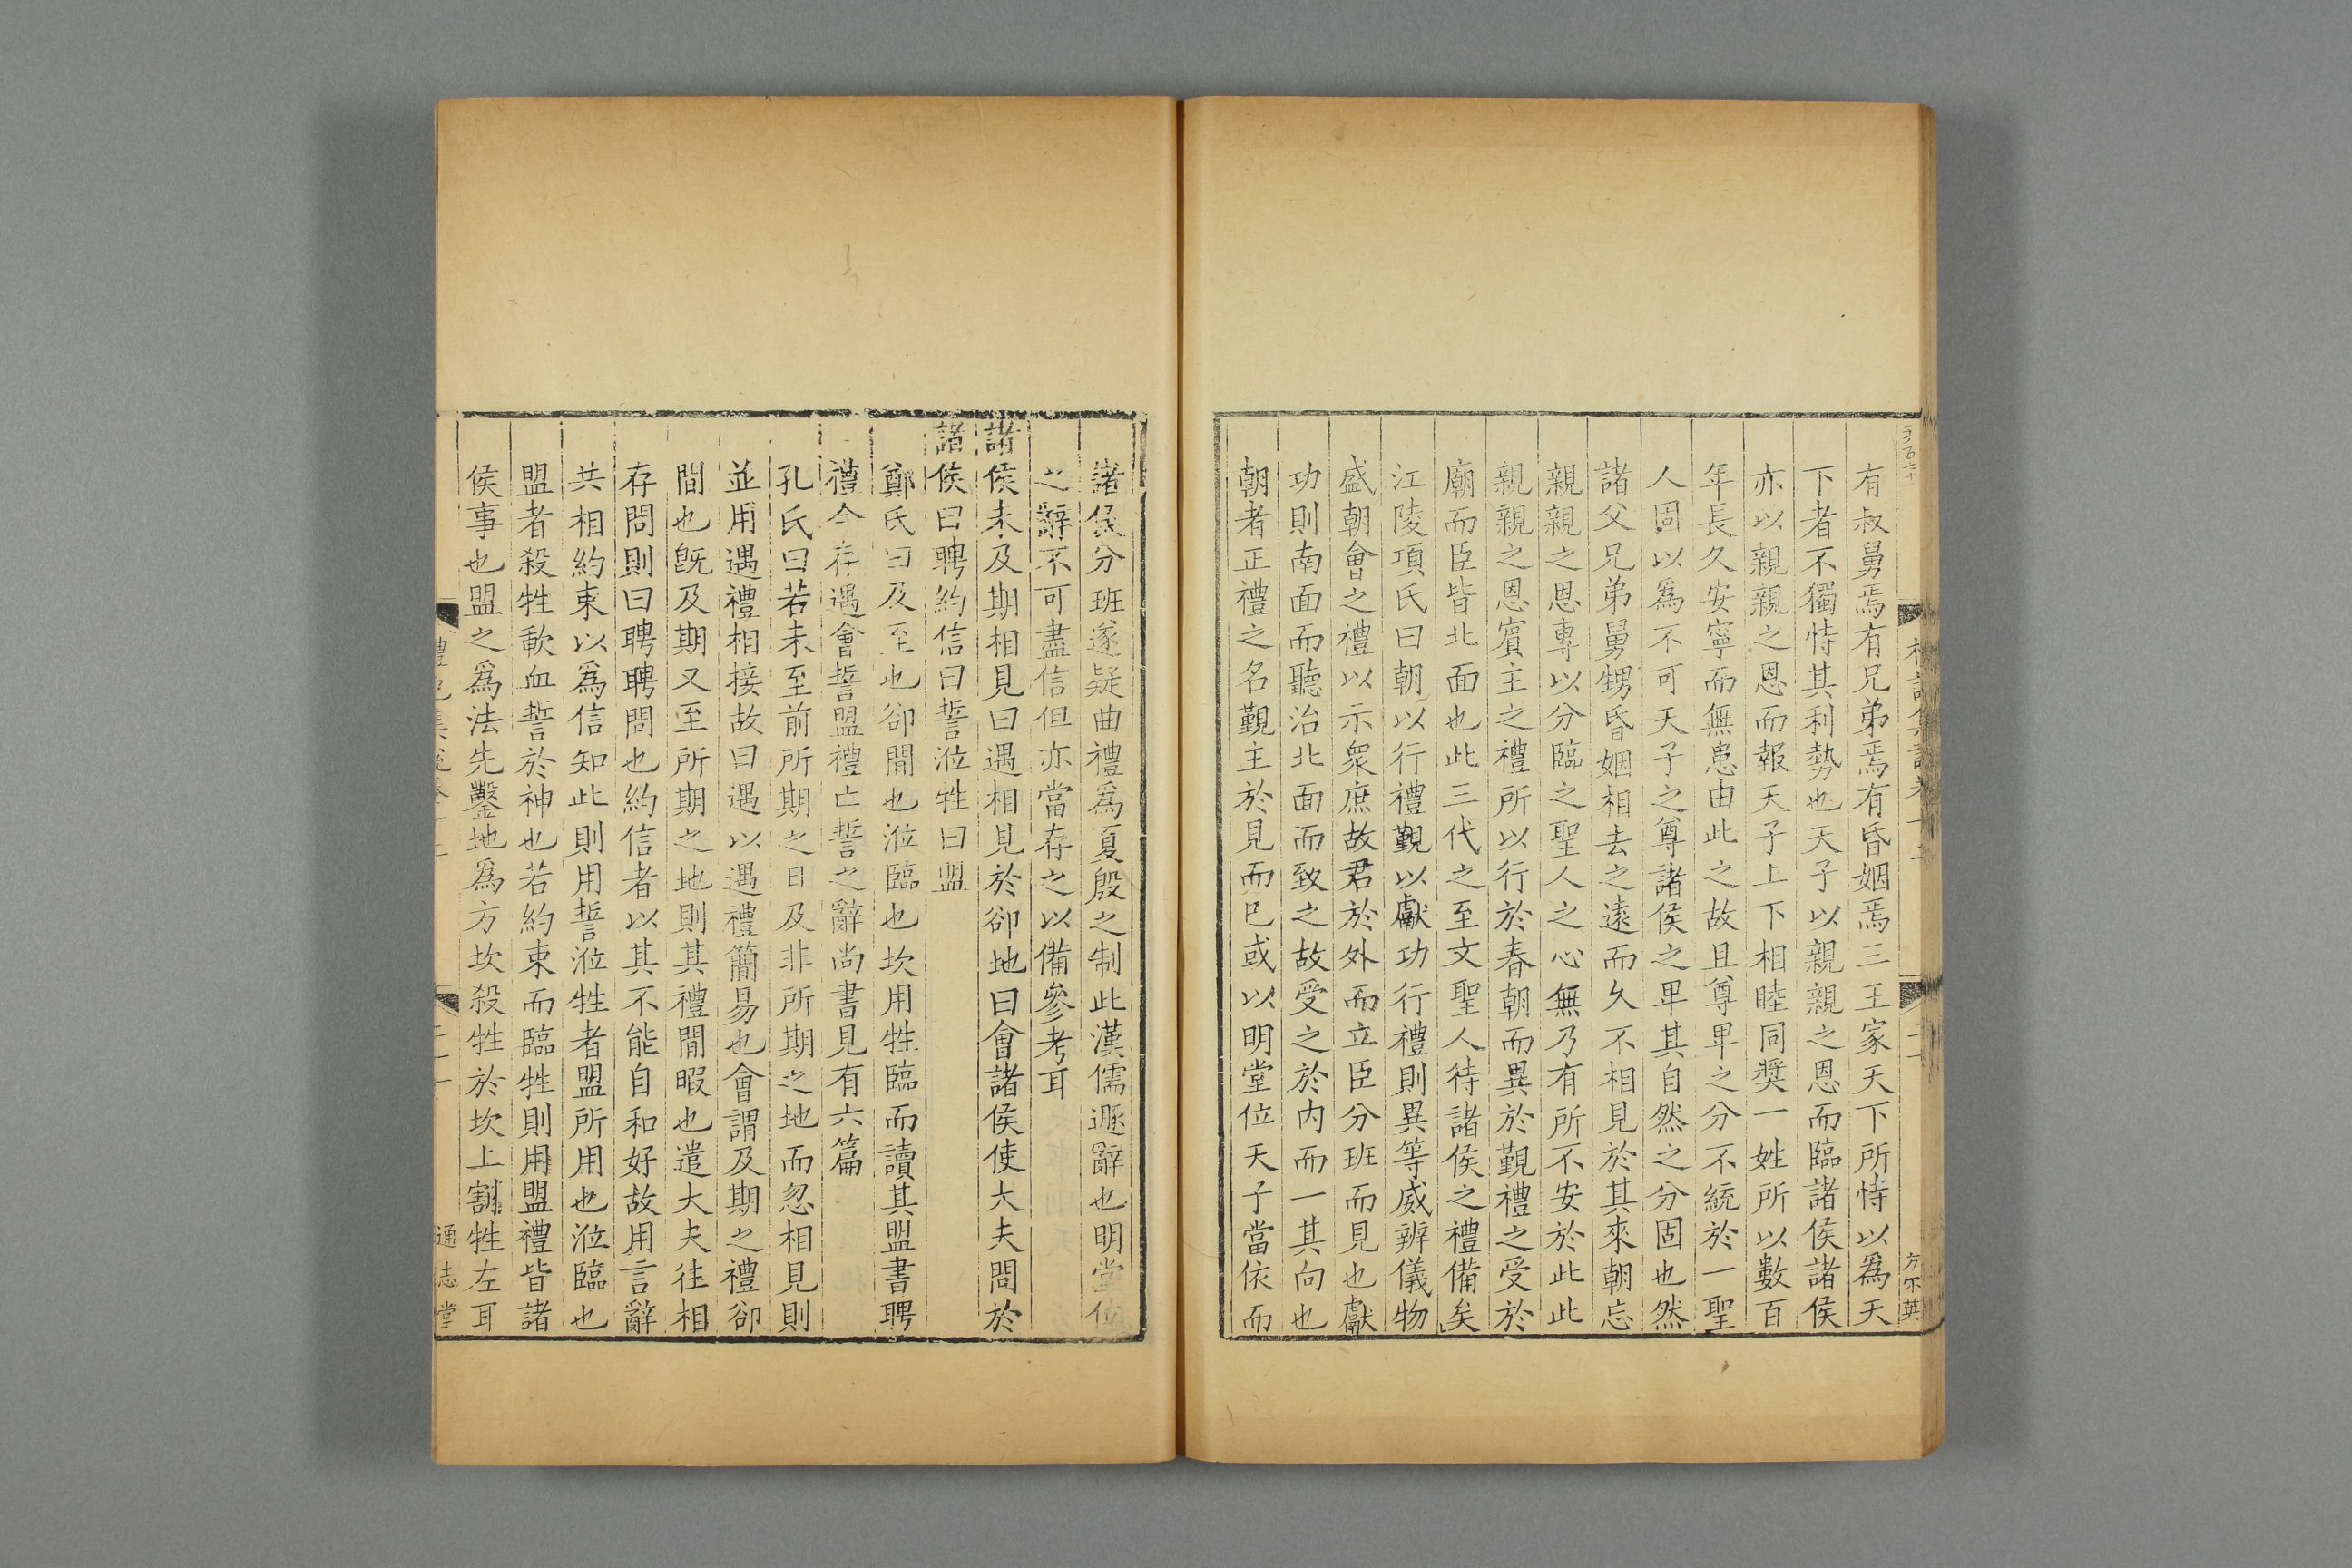 有叔舅焉有兄弟焉有昏姻焉三王家天下所恃以爲天
下者不獨恃其利勢也天子以親親之恩而臨諸侯諸侯
亦以親親之恩而報天子上下相睦同奬一姓所以數百
年長久安寧而無患由此之故且尊卑之分不統於一聖
人固以爲不可天子之尊諸侯之卑其自然之分固也然
諸父兄弟舅甥昏姻相去之遠而久不相見於其來朝忘
親親之恩專以分臨之聖人之心無乃有所不安於此此
親親之恩賓主之禮所以行於春朝而異於覲禮之受於
廟而臣皆北面也此三代之至文聖人待諸侯之禮備矣
江陵項氏曰朝以行禮覲以獻功行禮則異等威辨儀物
盛朝會之禮以示衆庶故君於外而立臣分班而見也獻
功則南面而聽治北面而致之故受之於内而一其向也
朝者正禮之名覲主於見而已或以明堂位天子當依而
諸侯分班遂疑曲禮爲夏殷之制此漢儒遁辭也明堂位
之辭不可盡信但亦當存之以備參考耳
諸侯未及期相見曰遇相見於郤地曰會諸侯使大夫問於
諸侯曰聘約信曰誓涖牲曰盟
鄭氏曰及至也郤間也涖臨也坎用牲臨而讀其盟書聘
禮今存遇會誓盟禮亡誓之辭尚書見有六篇
孔氏曰若未至前所期之日及非所期之地而忽相見則
並用遇禮相接故曰遇以遇禮簡易也會謂及期之禮郤
間也旣及期又至所期之地則其禮閒暇也遣大夫往相
存問則曰聘聘問也約信者以其不能自和好故用言辭
共相約束以爲信知此則用誓涖牲者盟所用也涖臨也
盟者殺牲歃血誓於神也若約束而臨牲則用盟禮皆諸
侯事也盟之爲法先鑿地爲方坎殺牲於坎上割牲左耳
通志堂